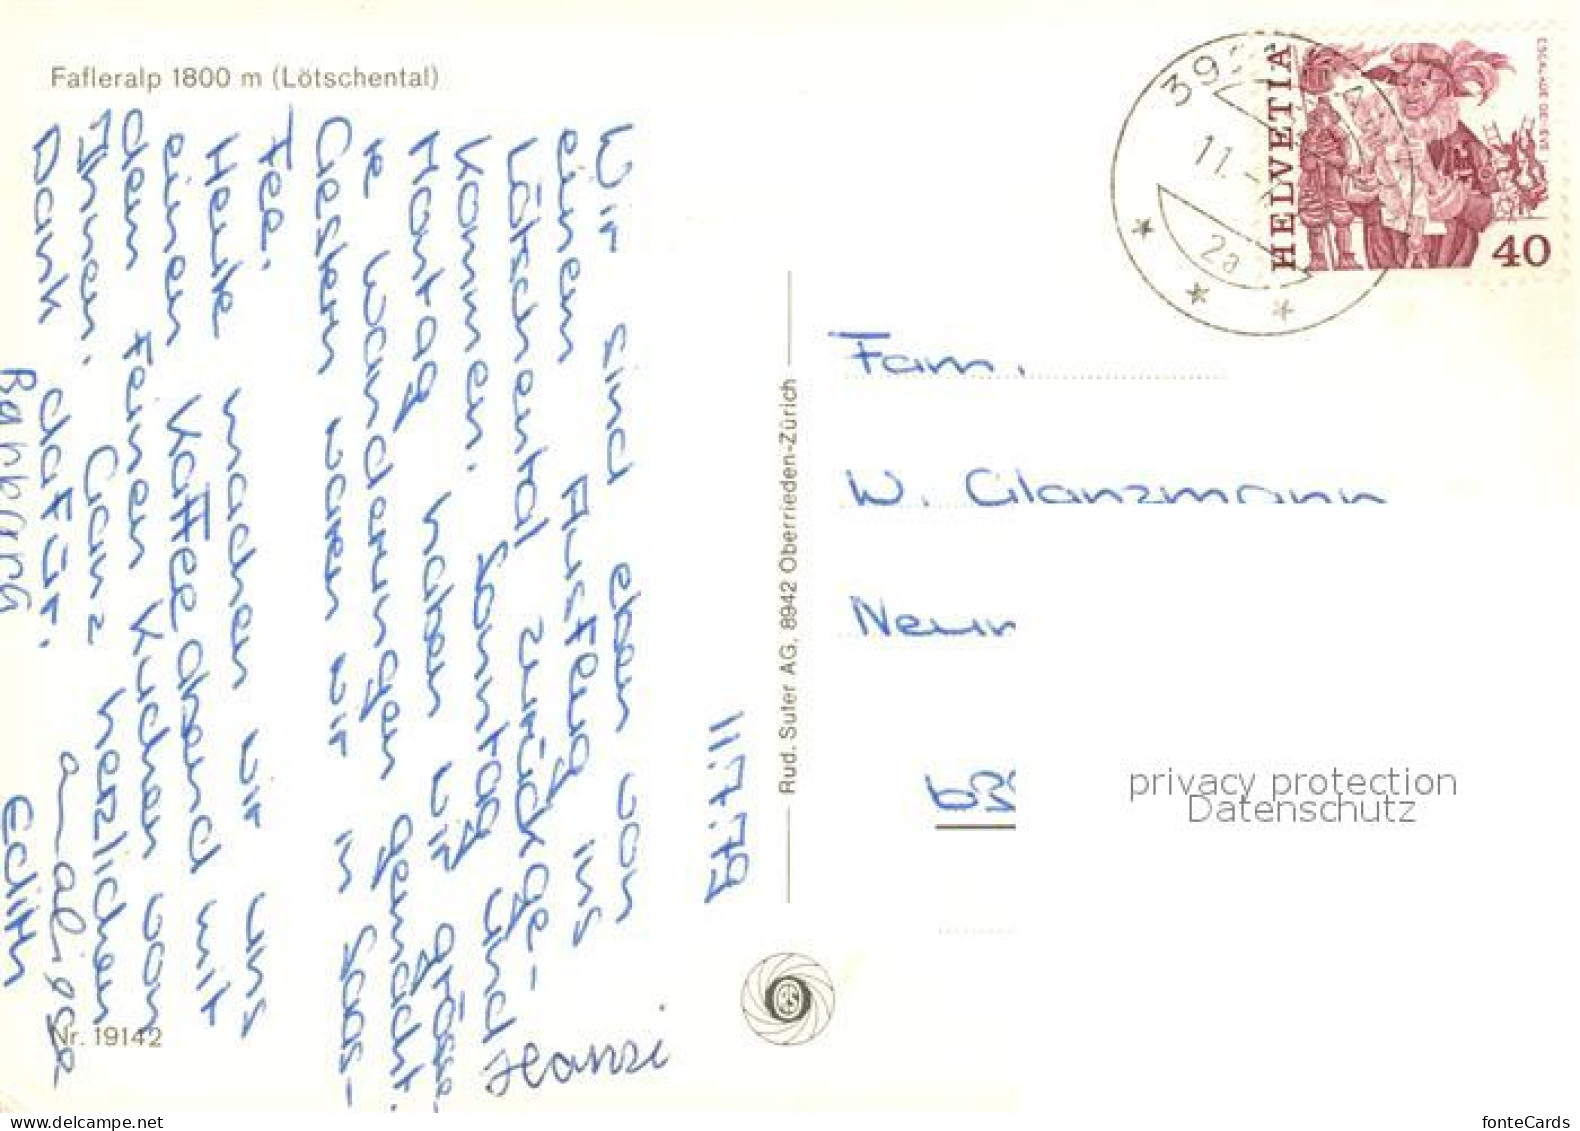 Fafleralp 1800 m (Lötschental)
11.7.79
Wir sind eben von
einem Ausfeug ins
Lötschental zurückge-
kommen. Sonntag und
Montag haben wir grösse-
re Wanderungen gemacht.
Gestern waren wir in Saas-
Fee.
Heute machen wir uns
einen Kaffeeabend mit
dem feinen Kuchen von
Ihnen. Ganz herzlichen
Dank dafür.
Edith
Hansi
Nr. 19142
Rud. Suter AG, 8942 Oberrieden-Zürich
HELVETIA
40
11.
2a
Fam.
W. Glanzmann
Neun
privacy protection
Datenschutz
fonteCards
www.delcampe.net